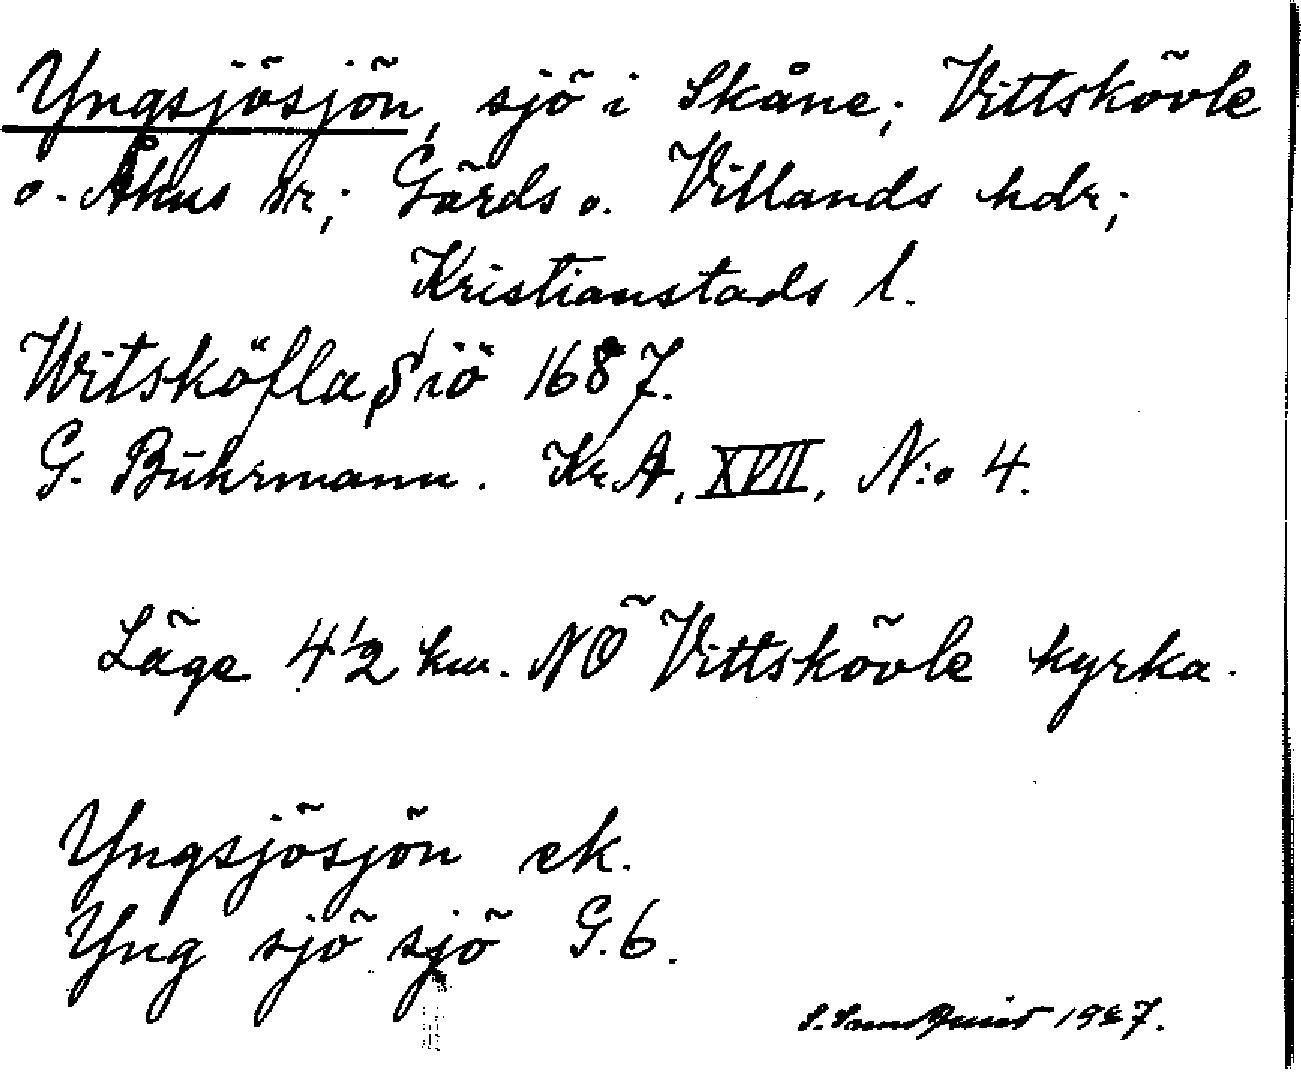 Yngsjösjön, sjö i Skåne; Vittskövle
o. Åhus sr; Gärds o. Villands hdr;
Kristianstads l.
Witsköfla Siö 1687.
G. Buhrmann. Kr.A, XVII, N:o 4.
Läge 4 1/2 km. NÖ Vittskövle kyrka.
Yngsjösjön ek.
Yng sjö sjö G.6.
S. Sundquist